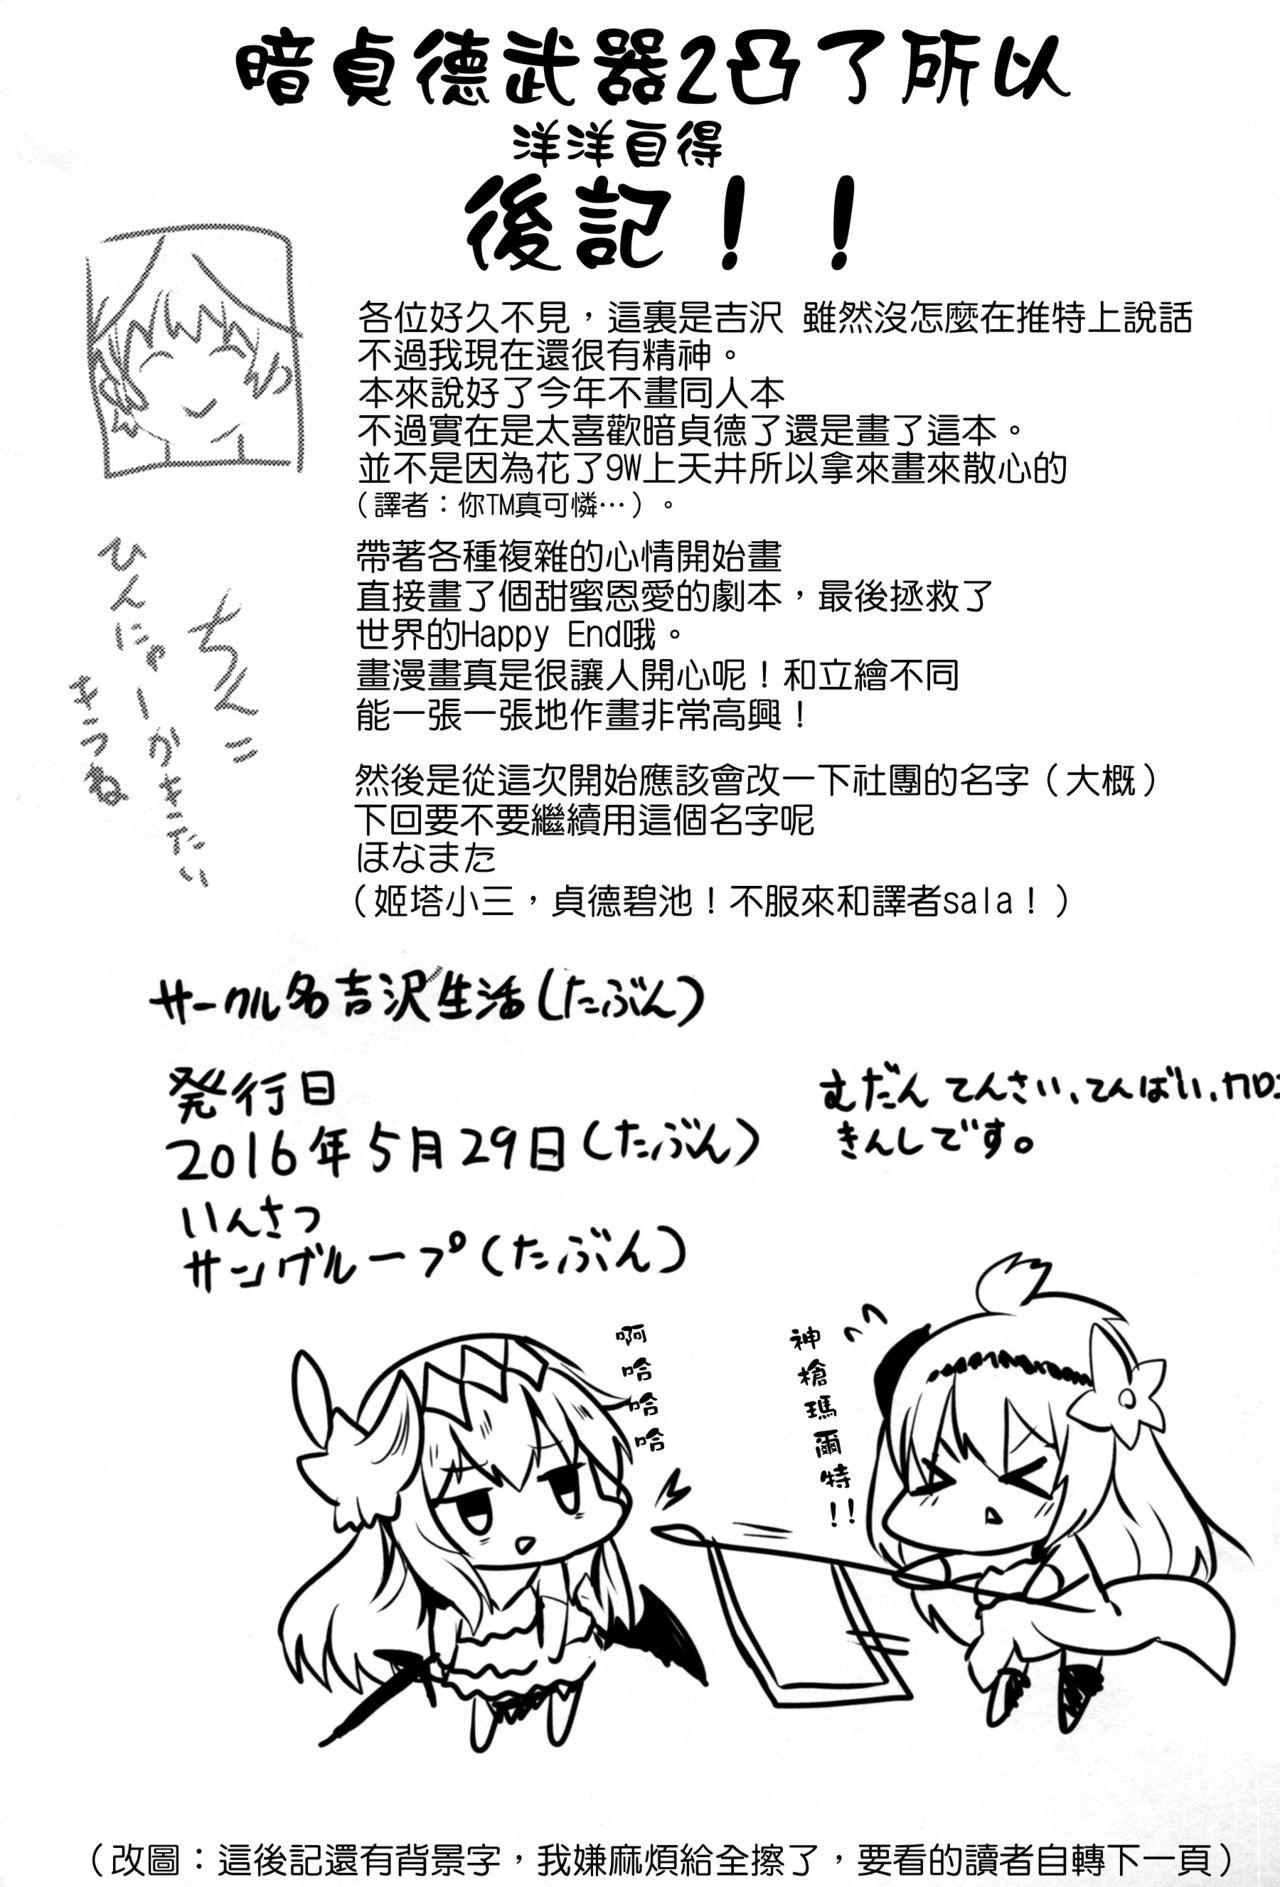 暗貞德武器2凸了所以
洋洋自得
後記！！
各位好久不見，這裏是吉沢 雖然沒怎麼在推特上說話
不過我現在還很有精神。
本來說好了今年不畫同人本
不過實在是太喜歡暗貞德了還是畫了這本。
並不是因為花了9W上天井所以拿來畫來散心的
（譯者：你TM真可憐…）。
帶著各種複雜的心情開始畫
直接畫了個甜蜜恩愛的劇本，最後拯救了
世界的Happy End哦。
畫漫畫真是很讓人開心呢！和立繪不同
能一張一張地作畫非常高興！
然後是從這次開始應該會改一下社團的名字（大概）
下回要不要繼續用這個名字呢
ほなまた
（姬塔小三，貞德碧池！不服來和譯者sala！）
ちんこ
ひんにゃーかきたい
きうね
サークル名吉沢生活(たぶん)
発行日
2016年5月29日(たぶん)
いんさつ
サングループ(たぶん)
むだん てんさい、てんばい、カロエ
きんしです。
啊哈哈哈
神槍瑪爾特!!
（改圖：這後記還有背景字，我嫌麻煩給全擦了，要看的讀者自轉下一頁）